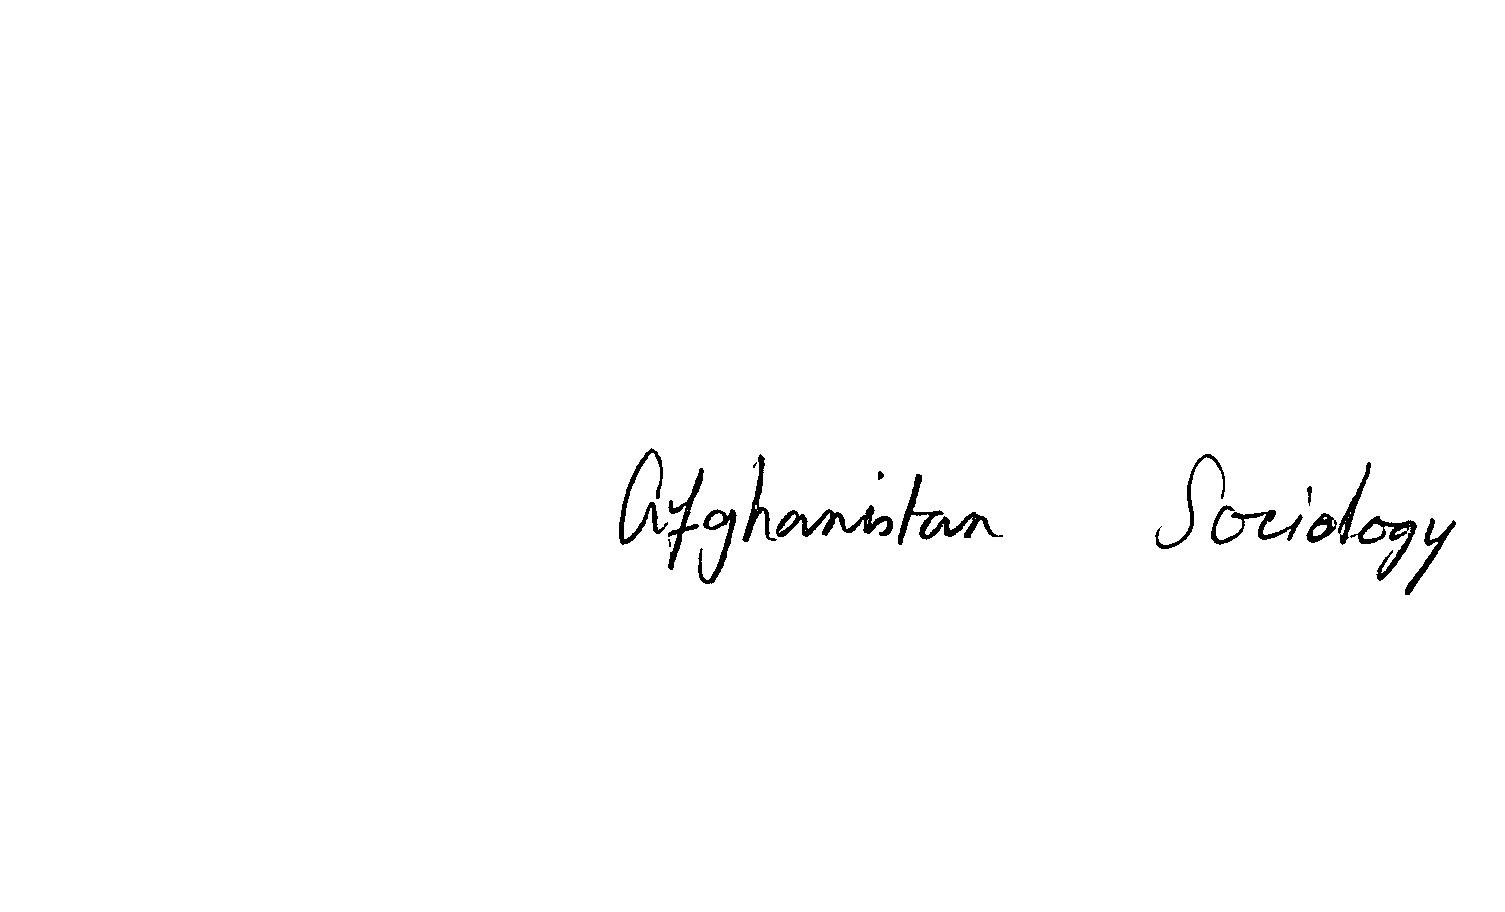 Afghanistan Sociology